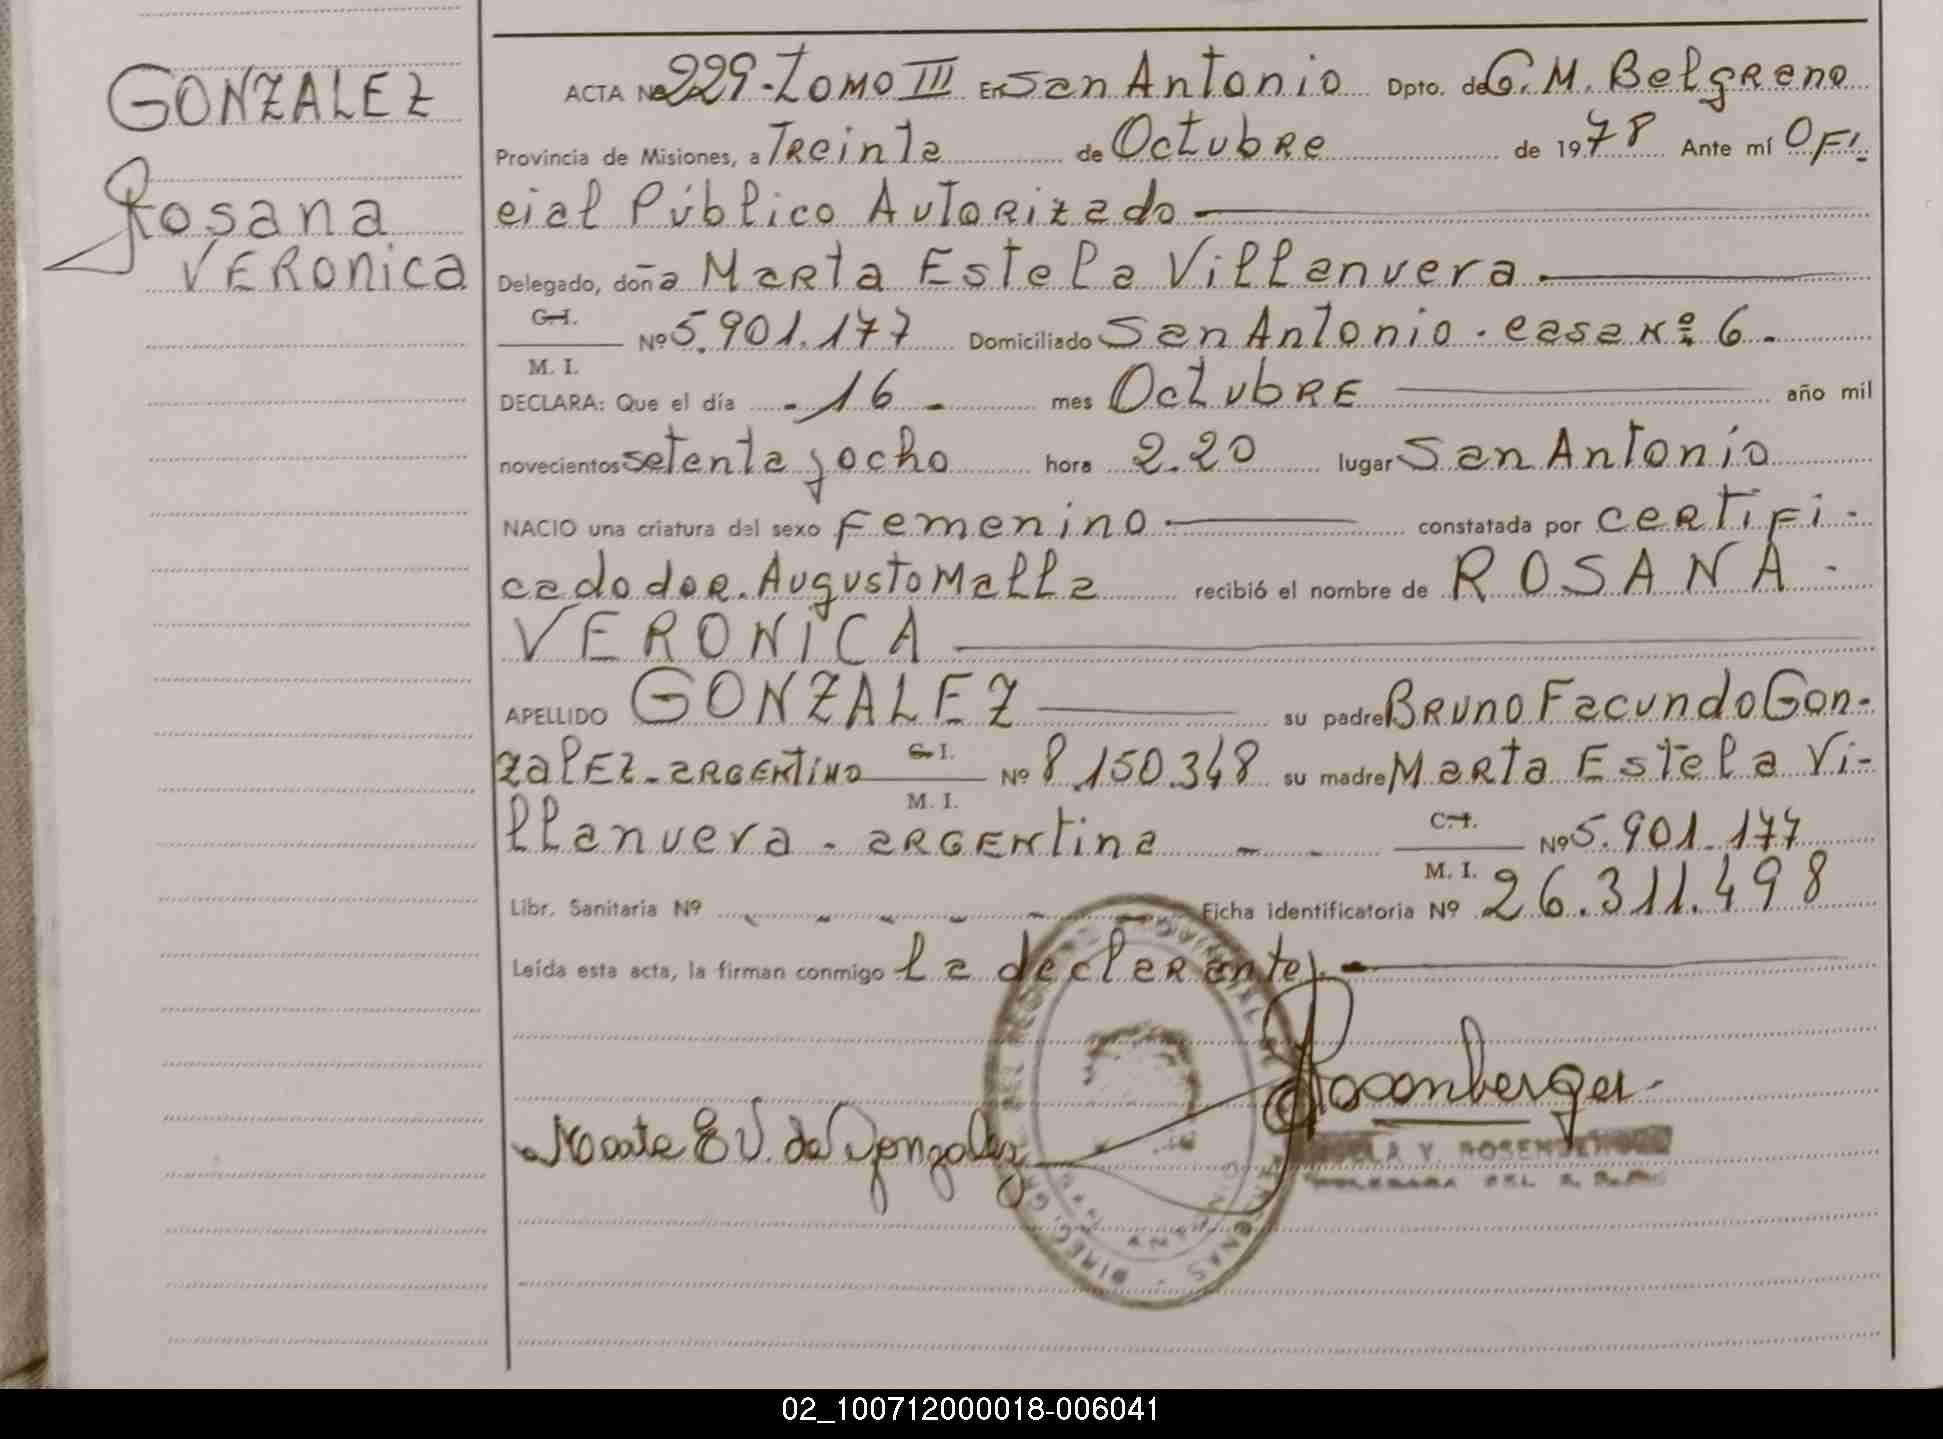 GONZALEZ
Rosana
VERONICA
ACTA Nº 229-Tomo III En San Antonio Dpto. de G.M. Belgrano
Provincia de Misiones, a Treinta de Octubre de 1978 Ante mí OFi-
cial Público Autorizado
Delegado, doña Marta Estela Villanvera
C.I.
Nº 5.901.177 Domiciliado San Antonio - casa nº 6.
M. I.
DECLARA: Que el día -16- mes Octubre año mil
novecientos setenta y ocho hora 2.20 lugar San Antonio
NACIO una criatura del sexo femenino constatada por certifi-
cado dor. Augusto Malla recibió el nombre de ROSANA -
VERONICA
APELLIDO GONZALEZ su padre Bruno Facundo Gon-
zalez - argentino C.I. Nº 8.150.348 su madre Marta Estela Vi-
M. I.
llanvera - argentina - - C.I. Nº 5.901.177
M. I.
Libr. Sanitaria Nº - - - - - - Ficha identificatoria Nº 26.311.498
Leída esta acta, la firman conmigo la declarante).-
Rosenberger
Marta E V. de Gonzalez
V. ROSENBERGER
02_100712000018-006041